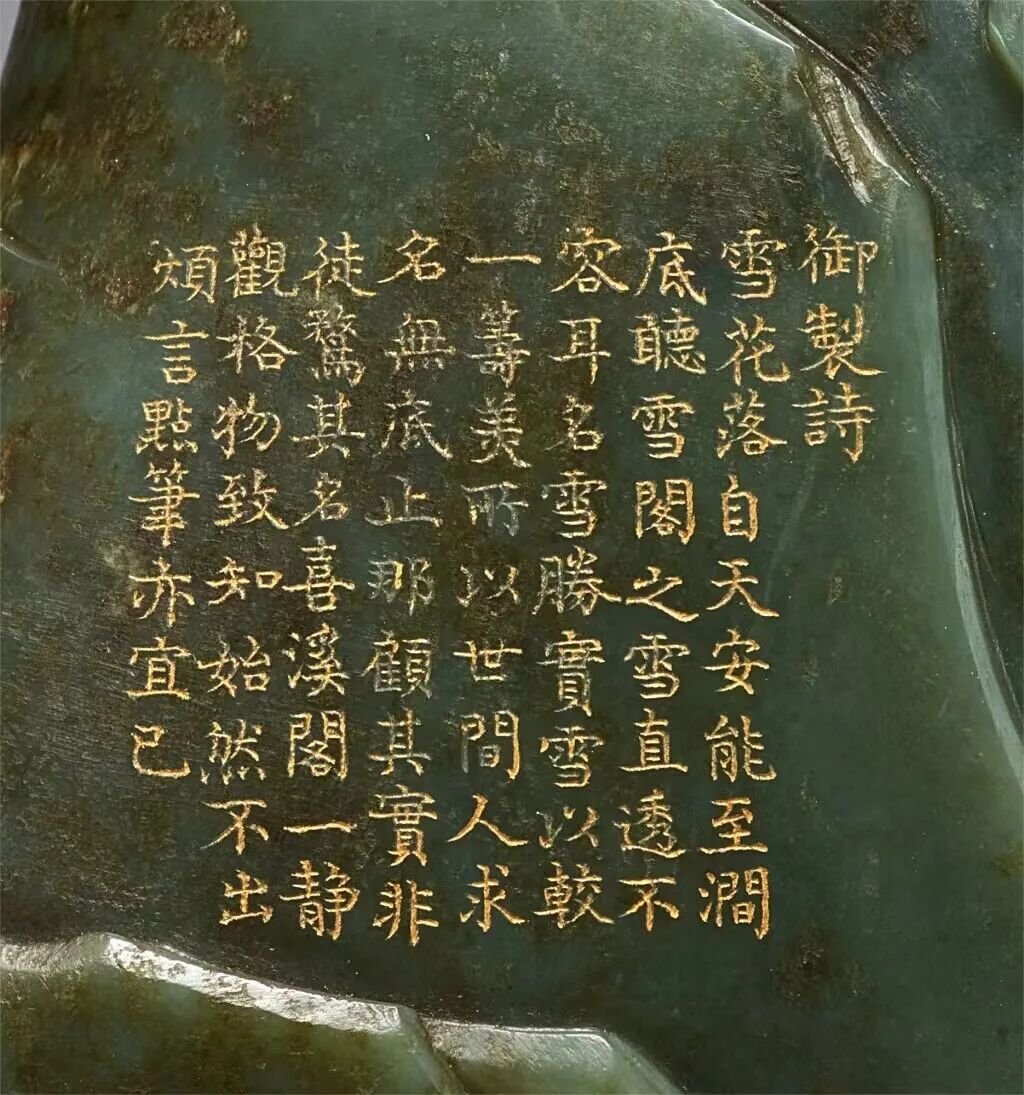 御製詩
雪花落自天安能至澗
底聽雪閣之雪直透不
容耳名雪勝實雪以較
一籌美所以世間人求
名無底止那顧其實非
徒騖其名喜溪閣一静
觀格物致知始然不出
煩言點筆亦宜已